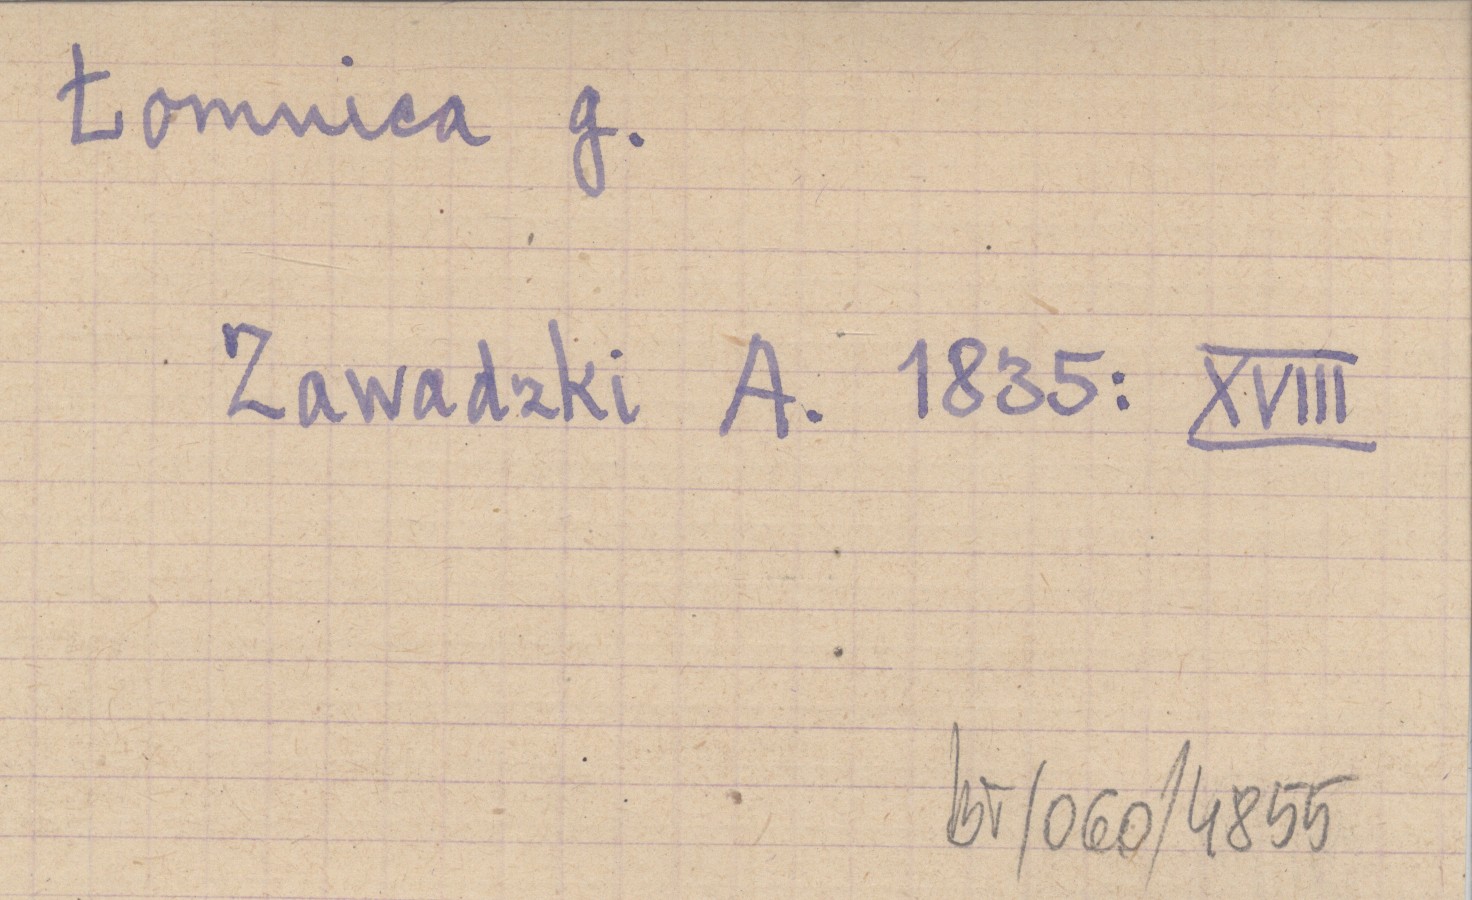 Łomnica g.
Zawadzki A. 1835: XVIII
/060/4855